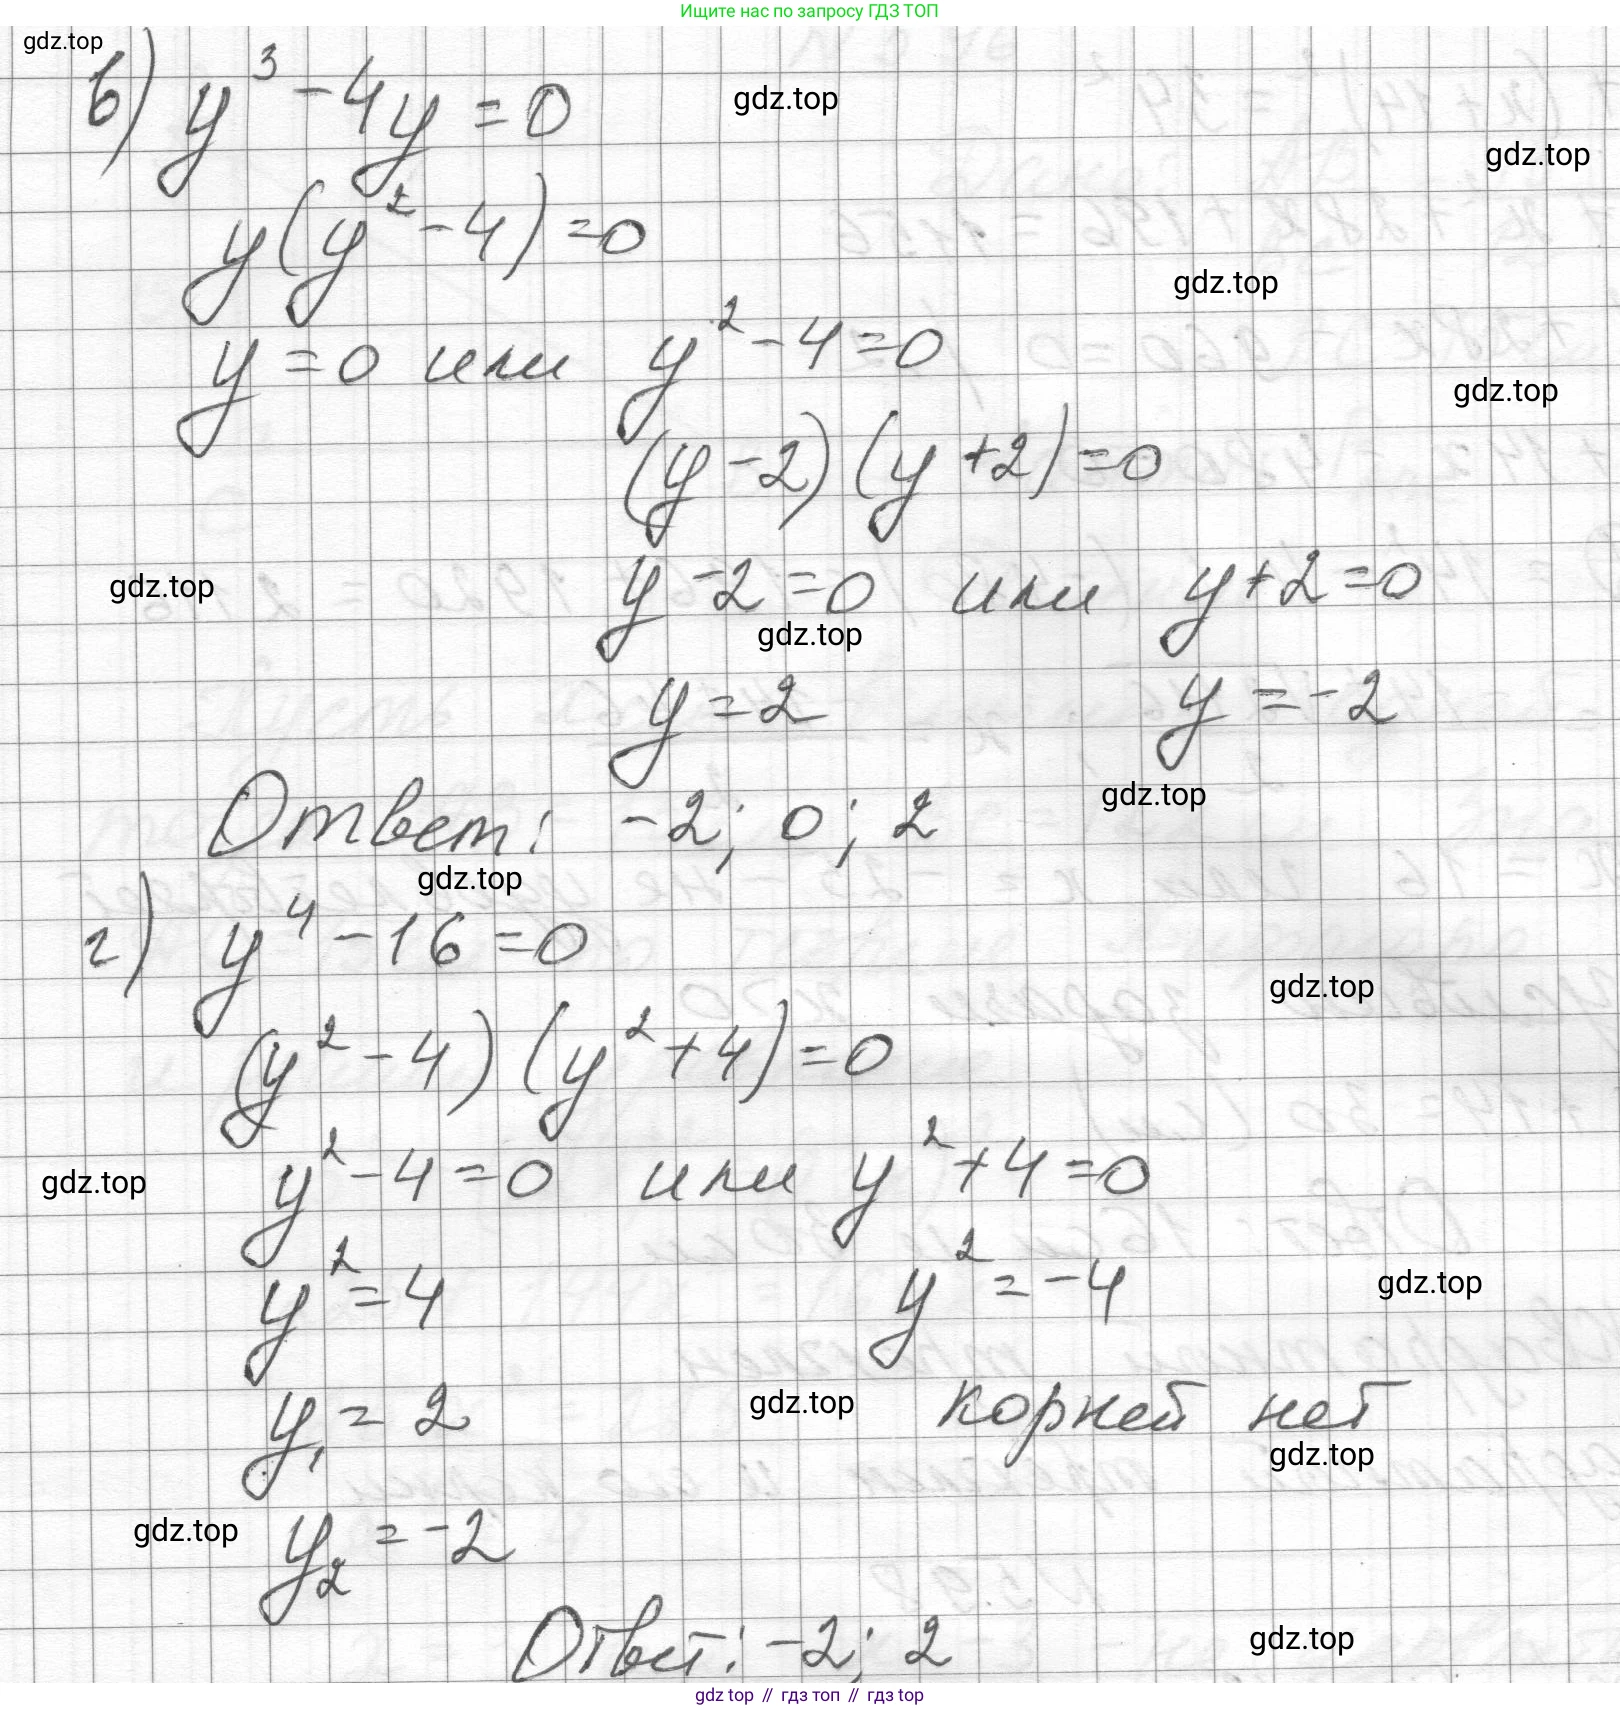 Ищите нас по запросу ГДЗ ТОП
gdz.top
в) y³ - 4y = 0
gdz.top
gdz.top
y(y² - 4) = 0
gdz.top
y = 0 или y² - 4 = 0
gdz.top
(y - 2)(y + 2) = 0
gdz.top
y - 2 = 0 или y + 2 = 0
gdz.top
y = 2 y = -2
gdz.top
Ответ: -2; 0; 2
gdz.top
г) y⁴ - 16 = 0
gdz.top
(y² - 4)(y² + 4) = 0
gdz.top
y² - 4 = 0 или y² + 4 = 0
y² = 4 y² = -4
gdz.top
y₁ = 2 корней нет
gdz.top
gdz.top
gdz.top
y₂ = -2
Ответ: -2; 2
gdz.top
gdz top // гдз топ // гдз top